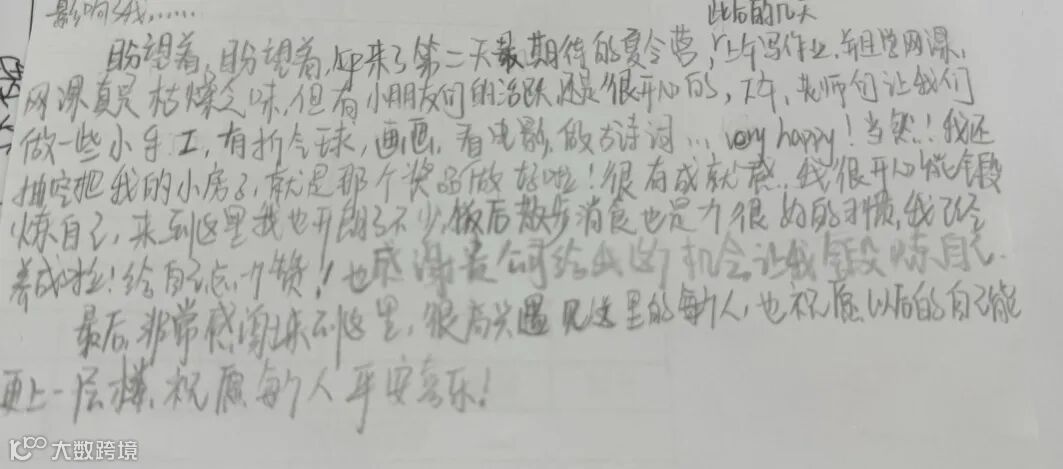 影响我……
此后的几天
盼望着,盼望着,迎来了第二天最期待的夏令营,上午写作业,并且学网课,
网课真是枯燥乏味,但有小朋友们的活跃,还是很开心的,下午,老师们让我们
做一些小手工,有折令球,画画,看电影,做古诗词… very happy!当然!我还
抽空把我的小房子,就是那个奖品做好啦!很有成就感,我很开心能锻
炼自己,来到这里我也开朗了不少,饭后散步消食也是个很好的习惯,我已经
养成啦!给自己点个赞!也感谢贵公司给我这个机会让我锻炼自己.
最后,非常感谢来到这里,很高兴遇见这里的每个人,也祝愿以后的自己能
更上一层楼,祝愿每个人平安喜乐!
大数跨境